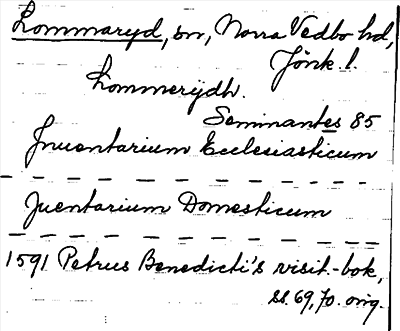 Lommaryd, sn, Norra Vedbo hd,
Jönk. l.
Lommerydh.
Seminantes 85
Inuentarium Ecclesiasticum
Juentarium Domesticum
1591 Petrus Benedicti's visit.-bok,
ss. 69, 70. orig.